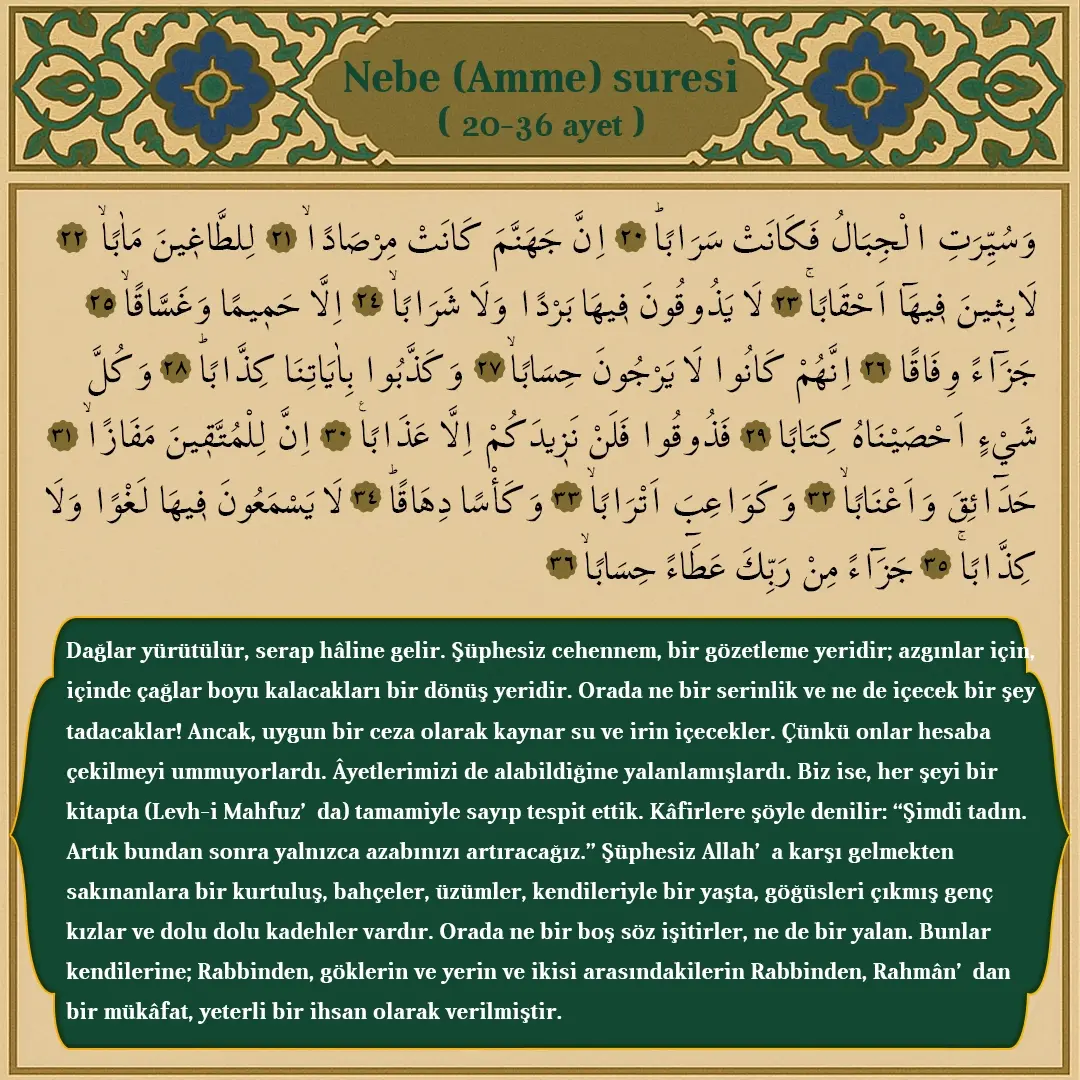 Nebe (Amme) suresi
( 20-36 ayet )
وَسُيِّرَتِ الْجِبَالُ فَكَانَتْ سَرَابًاۜ ﴿٢٠﴾ اِنَّ جَهَنَّمَ كَانَتْ مِرْصَادًاۙ ﴿٢١﴾ لِلطَّاغ۪ينَ مَاٰبًاۙ ﴿٢٢﴾
لَابِث۪ينَ ف۪يهَٓا اَحْقَابًاۚ ﴿٢٣﴾ لَا يَذُوقُونَ ف۪يهَا بَرْدًا وَلَا شَرَابًاۙ ﴿٢٤﴾ اِلَّا حَم۪يمًا وَغَسَّاقًاۙ ﴿٢٥﴾
جَزَٓاءً وِفَاقًا ﴿٢٦﴾ اِنَّهُمْ كَانُوا لَا يَرْجُونَ حِسَابًاۙ ﴿٢٧﴾ وَكَذَّبُوا بِاٰيَاتِنَا كِذَّابًاۜ ﴿٢٨﴾ وَكُلَّ
شَيْءٍ اَحْصَيْنَاهُ كِتَابًا ﴿٢٩﴾ فَذُوقُوا فَلَنْ نَز۪يدَكُمْ اِلَّا عَذَابًاۧ ﴿٣٠﴾ اِنَّ لِلْمُتَّق۪ينَ مَفَازًاۙ ﴿٣١﴾
حَدَٓائِقَ وَاَعْنَابًاۙ ﴿٣٢﴾ وَكَوَاعِبَ اَتْرَابًاۙ ﴿٣٣﴾ وَكَأْسًا دِهَاقًاۜ ﴿٣٤﴾ لَا يَسْمَعُونَ ف۪يهَا لَغْوًا وَلَا
كِذَّابًاۚ ﴿٣٥﴾ جَزَٓاءً مِنْ رَبِّكَ عَطَٓاءً حِسَابًاۙ ﴿٣٦﴾
Dağlar yürütülür, serap hâline gelir. Şüphesiz cehennem, bir gözetleme yeridir; azgınlar için,
içinde çağlar boyu kalacakları bir dönüş yeridir. Orada ne bir serinlik ve ne de içecek bir şey
tadacaklar! Ancak, uygun bir ceza olarak kaynar su ve irin içecekler. Çünkü onlar hesaba
çekilmeyi ummuyorlardı. Âyetlerimizi de alabildiğine yalanlamışlardı. Biz ise, her şeyi bir
kitapta (Levh-i Mahfuz’ da) tamamiyle sayıp tespit ettik. Kâfirlere şöyle denilir: “Şimdi tadın.
Artık bundan sonra yalnızca azabınızı artıracağız.” Şüphesiz Allah’ a karşı gelmekten
sakınanlara bir kurtuluş, bahçeler, üzümler, kendileriyle bir yaşta, göğüsleri çıkmış genç
kızlar ve dolu dolu kadehler vardır. Orada ne bir boş söz işitirler, ne de bir yalan. Bunlar
kendilerine; Rabbinden, göklerin ve yerin ve ikisi arasındakilerin Rabbinden, Rahmân’ dan
bir mükâfat, yeterli bir ihsan olarak verilmiştir.